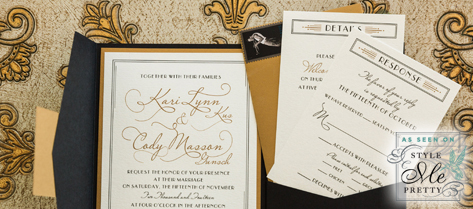 TOGETHER WITH THEIR FAMILIES
Kari Lynn
Kus
&
Cody Masson
Dunsch
REQUEST THE HONOR OF YOUR PRESENCE
AT THEIR MARRIAGE
ON SATURDAY, THE FIFTEENTH OF NOVEMBER
Two Thousand and Fourteen
AT FOUR O'CLOCK IN THE AFTERNOON
DETAILS
PLEASE
ON THUR
AT FIVE
RESPONSE
The favor of your reply
THE FIFTEENTH OF OCTOBER
ACCEPTS WITH PLEASURE
DECLINES WITH
AS SEEN ON
STYLE
Me
PRETTY